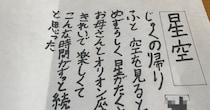 星空
じゅくの帰り
ふと空を見ると
めずらしく星がたく
お母さんとオリオン座
きれいで楽しくて
こんな時間がずっと続
と思った。